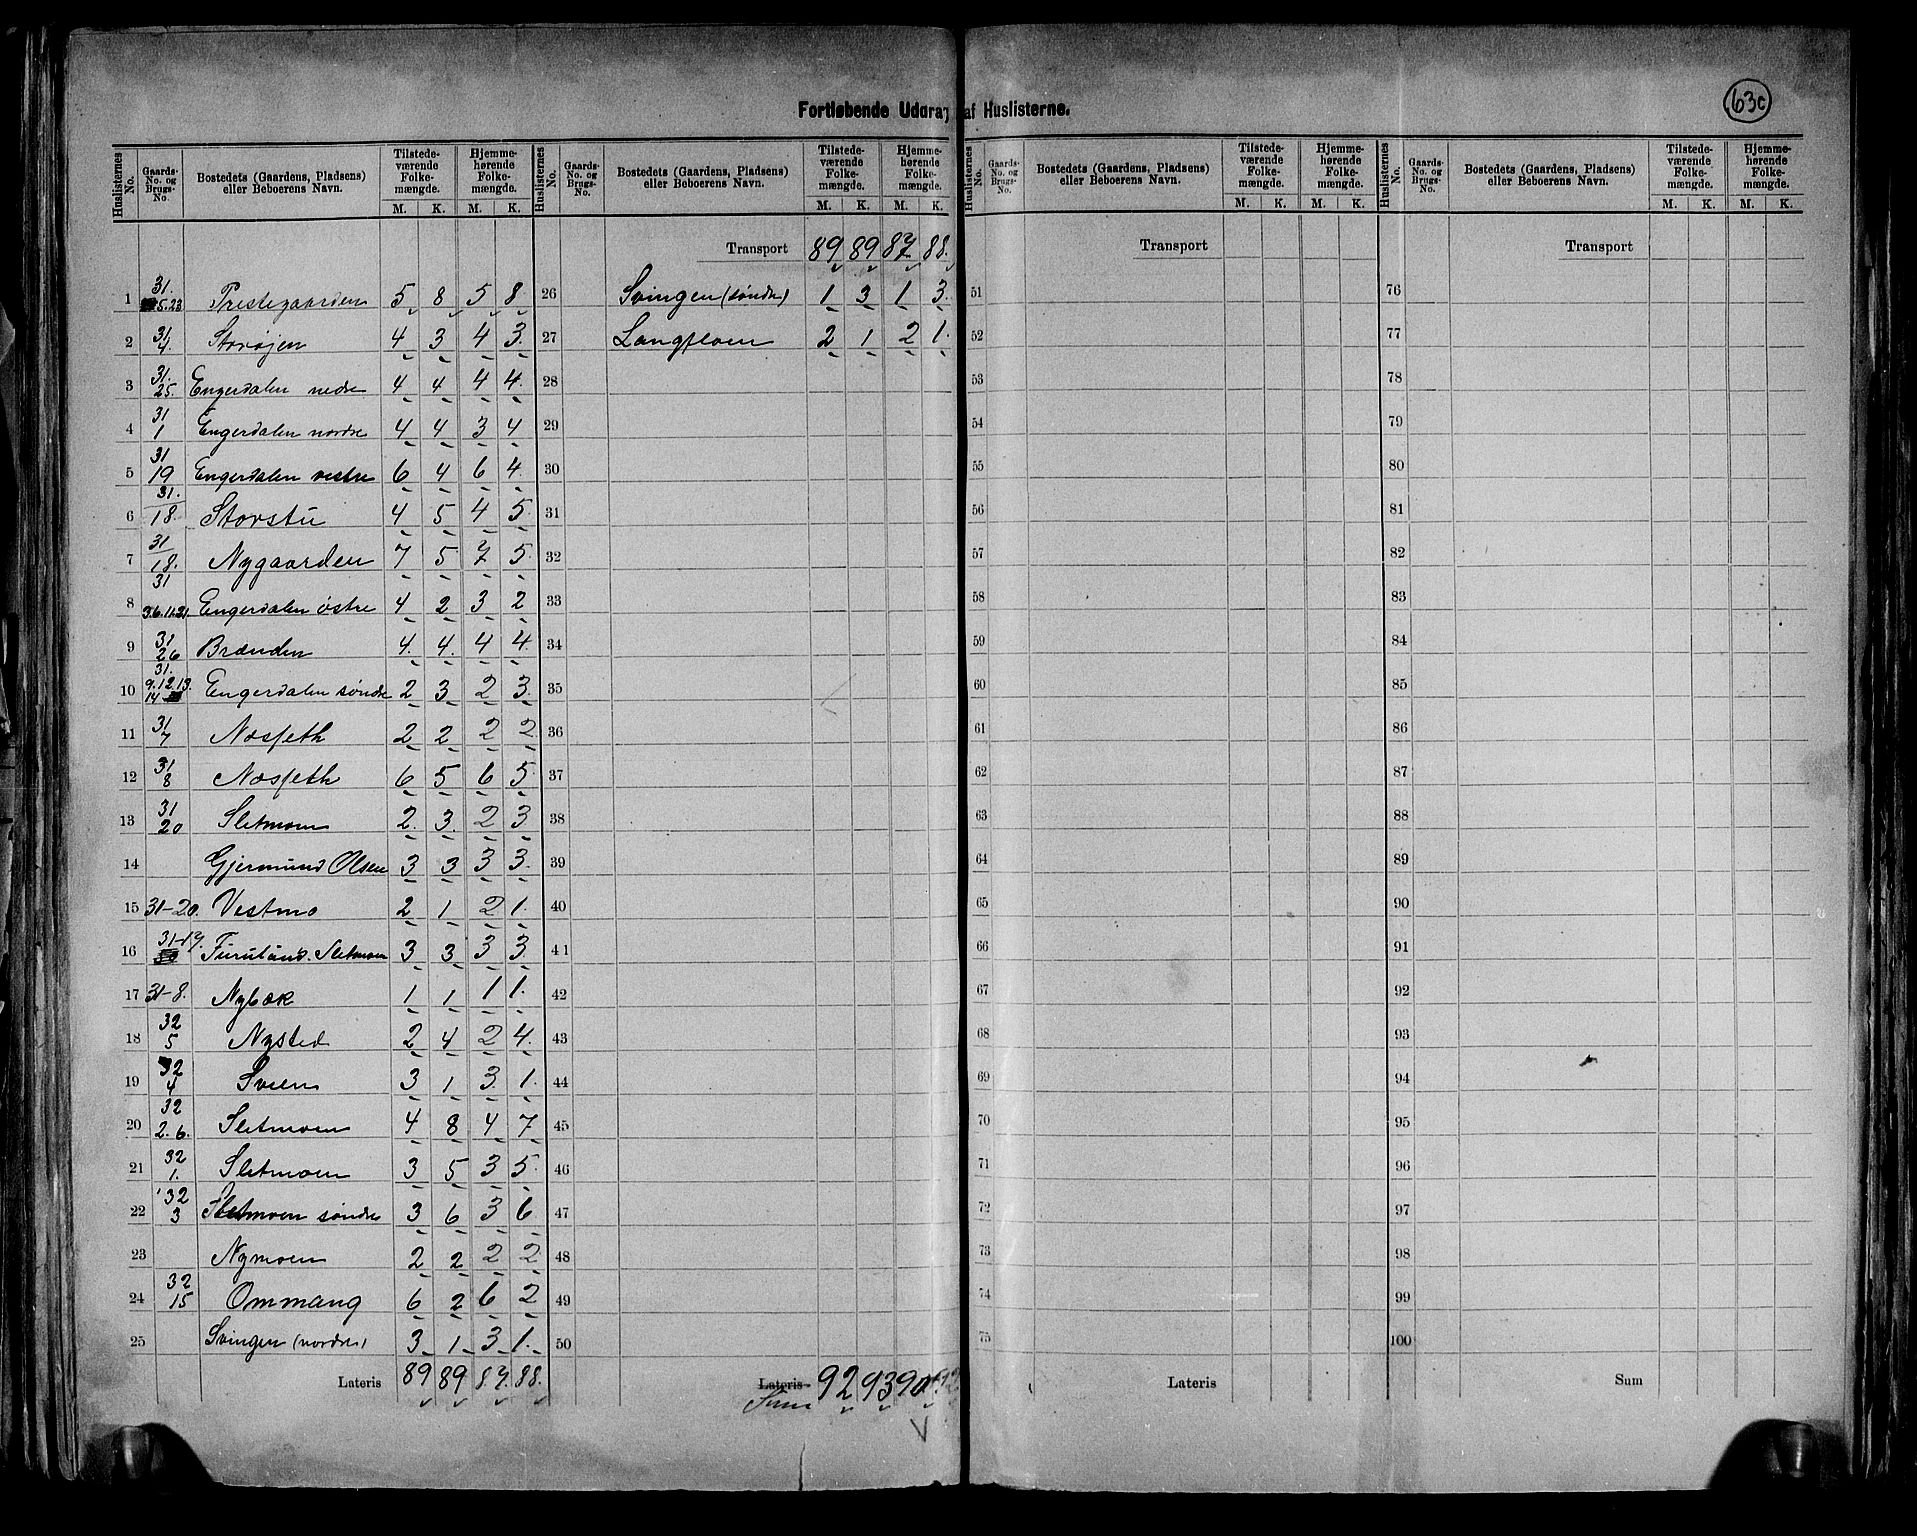 63c
Fortløbende Uddrag af Huslisterne.
Huslisternes No. | Gaards-No. og Brugs-No. | Bostedets (Gaardens, Pladsens) eller Beboerens Navn. | Tilstedeværende Folkemængde. M. K. | Hjemmehørende Folkemængde. M. K.
1 31. 5.23 Prestegaarden 5 8 5 8
2 31 4. Storøjen 4 3 4 3.
3 31. 25. Engerdalen nedre 4 4 4 4.
4 31 1 Engerdalen nordre 4 4 3 4
5 31 19 Engerdalen vestre 6 4 6 4.
6 31. 18. Storstu 4 5 4 5.
7 31 18. Nygaarden 7 5 7 5.
8 31 3.6.11.21. Engerdalen østre 4 2 3 2
9 31 26 Brænden 4. 4. 4 4.
10 31. 9.12.13. 14 Engerdalen søndre 2 3. 2 3.
11 31 7 Næsfeth 2 2 2 2.
12 31 8 Næsfeth 6 5 6 5.
13 31 20 Sletmoen 2. 3. 2 3
14 Gjermund Olsen 3 3 3 3.
15 31-20. Vestmo 2 1 2 1.
16 31-17. Furulund. Sletmoen 3 3 3 3.
17 31-8. Nybæk 1 1 1 1.
18 32 5 Nysted 2 4 2 4.
19 32 4 Sveen 3 1 3. 1.
20 32 2.6. Sletmoen 4 8 4 7
21 32 1. Sletmoen 3 5 3 5.
22 32 3 Sletmoen søndre 3 6 3 6
23 Nymoen 2 2 2 2
24 32 15 Ommang 6 2 6 2
25 Svingen (nordre) 3 1 3 1.
Lateris 89 89 87. 88.
Huslisternes No. | Gaards-No. og Brugs-No. | Bostedets (Gaardens, Pladsens) eller Beboerens Navn. | Tilstedeværende Folkemængde. M. K. | Hjemmehørende Folkemængde. M. K.
Transport 89 89 87 88.
26 Svingen (søndre) 1 3 1 3.
27 Langfloen 2 1 2 1.
28
29
30
31
32
33
34
35
36
37
38
39
40
41
42
43
44
45
46
47
48
49
50
Lateris 92 93 90 92
Sum
Huslisternes No. | Gaards-No. og Brugs-No. | Bostedets (Gaardens, Pladsens) eller Beboerens Navn. | Tilstedeværende Folkemængde. M. K. | Hjemmehørende Folkemængde. M. K.
Transport
51
52
53
54
55
56
57
58
59
60
61
62
63
64
65
66
67
68
69
70
71
72
73
74
75
Lateris
Huslisternes No. | Gaards-No. og Brugs-No. | Bostedets (Gaardens, Pladsens) eller Beboerens Navn. | Tilstedeværende Folkemængde. M. K. | Hjemmehørende Folkemængde. M. K.
Transport
76
77
78
79
80
81
82
83
84
85
86
87
88
89
90
91
92
93
94
95
96
97
98
99
100
Sum